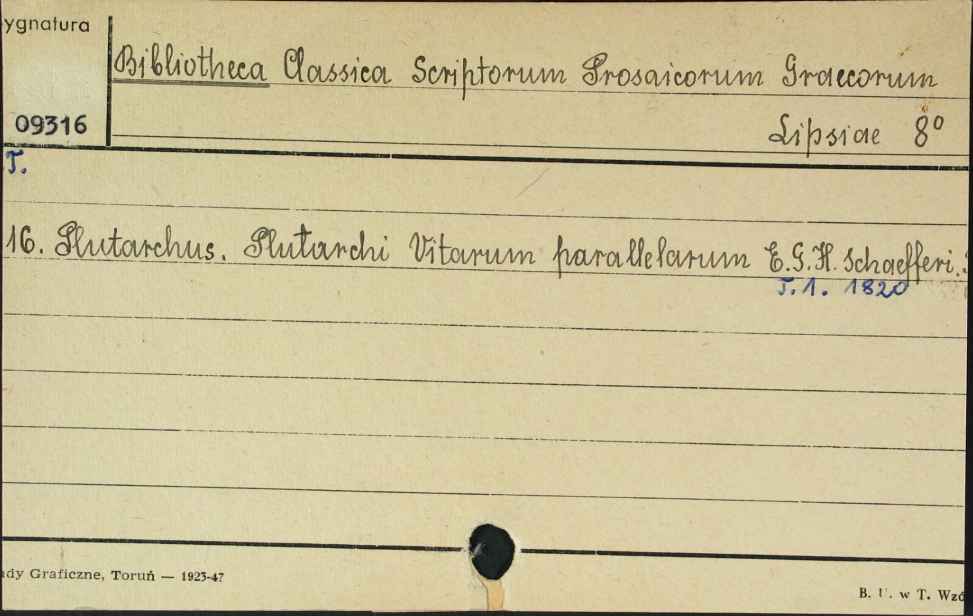 ygnatura
Bibliotheca Classica Scriptorum Prosaicorum Graecorum
09316
Lipsiae 8°
T.
16. Plutarchus. Plutarchi Vitarum parallelarum E.G.H. Schaefferi.
T.1. 1820
ady Graficzne, Toruń — 1923-47
B. U. w T. Wzó